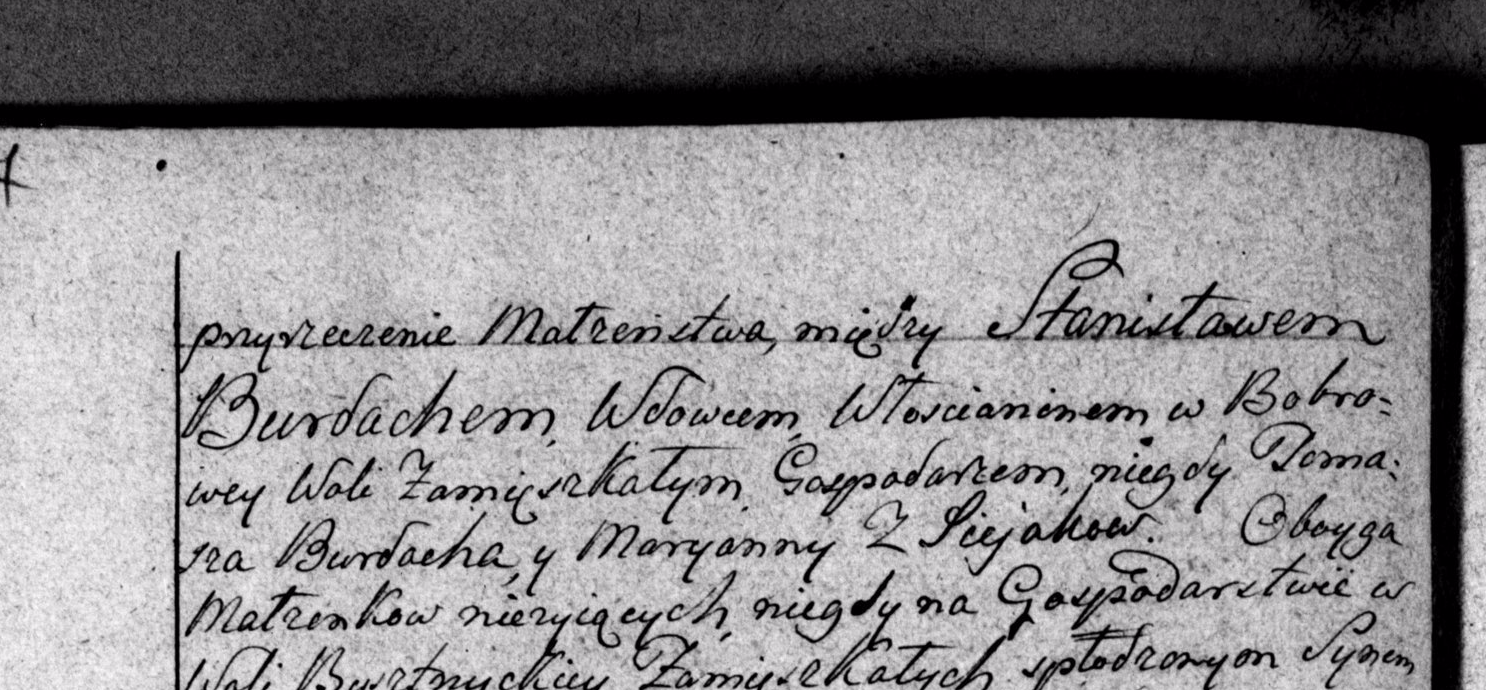 przyrzeczenie Małżeństwa, między Stanisławem
Burdachem, Wdowcem, Włościaninem w Bobro-
wey Woli Zamięszkałym, Gospodarzem, niegdy Toma-
sza Burdacha, y Maryanny Z Siejakow. Oboyga
Małżonkow nieżyiących, niegdy na Gospodarstwie w
Woli Zamięszkałych, spłodzonym Synem